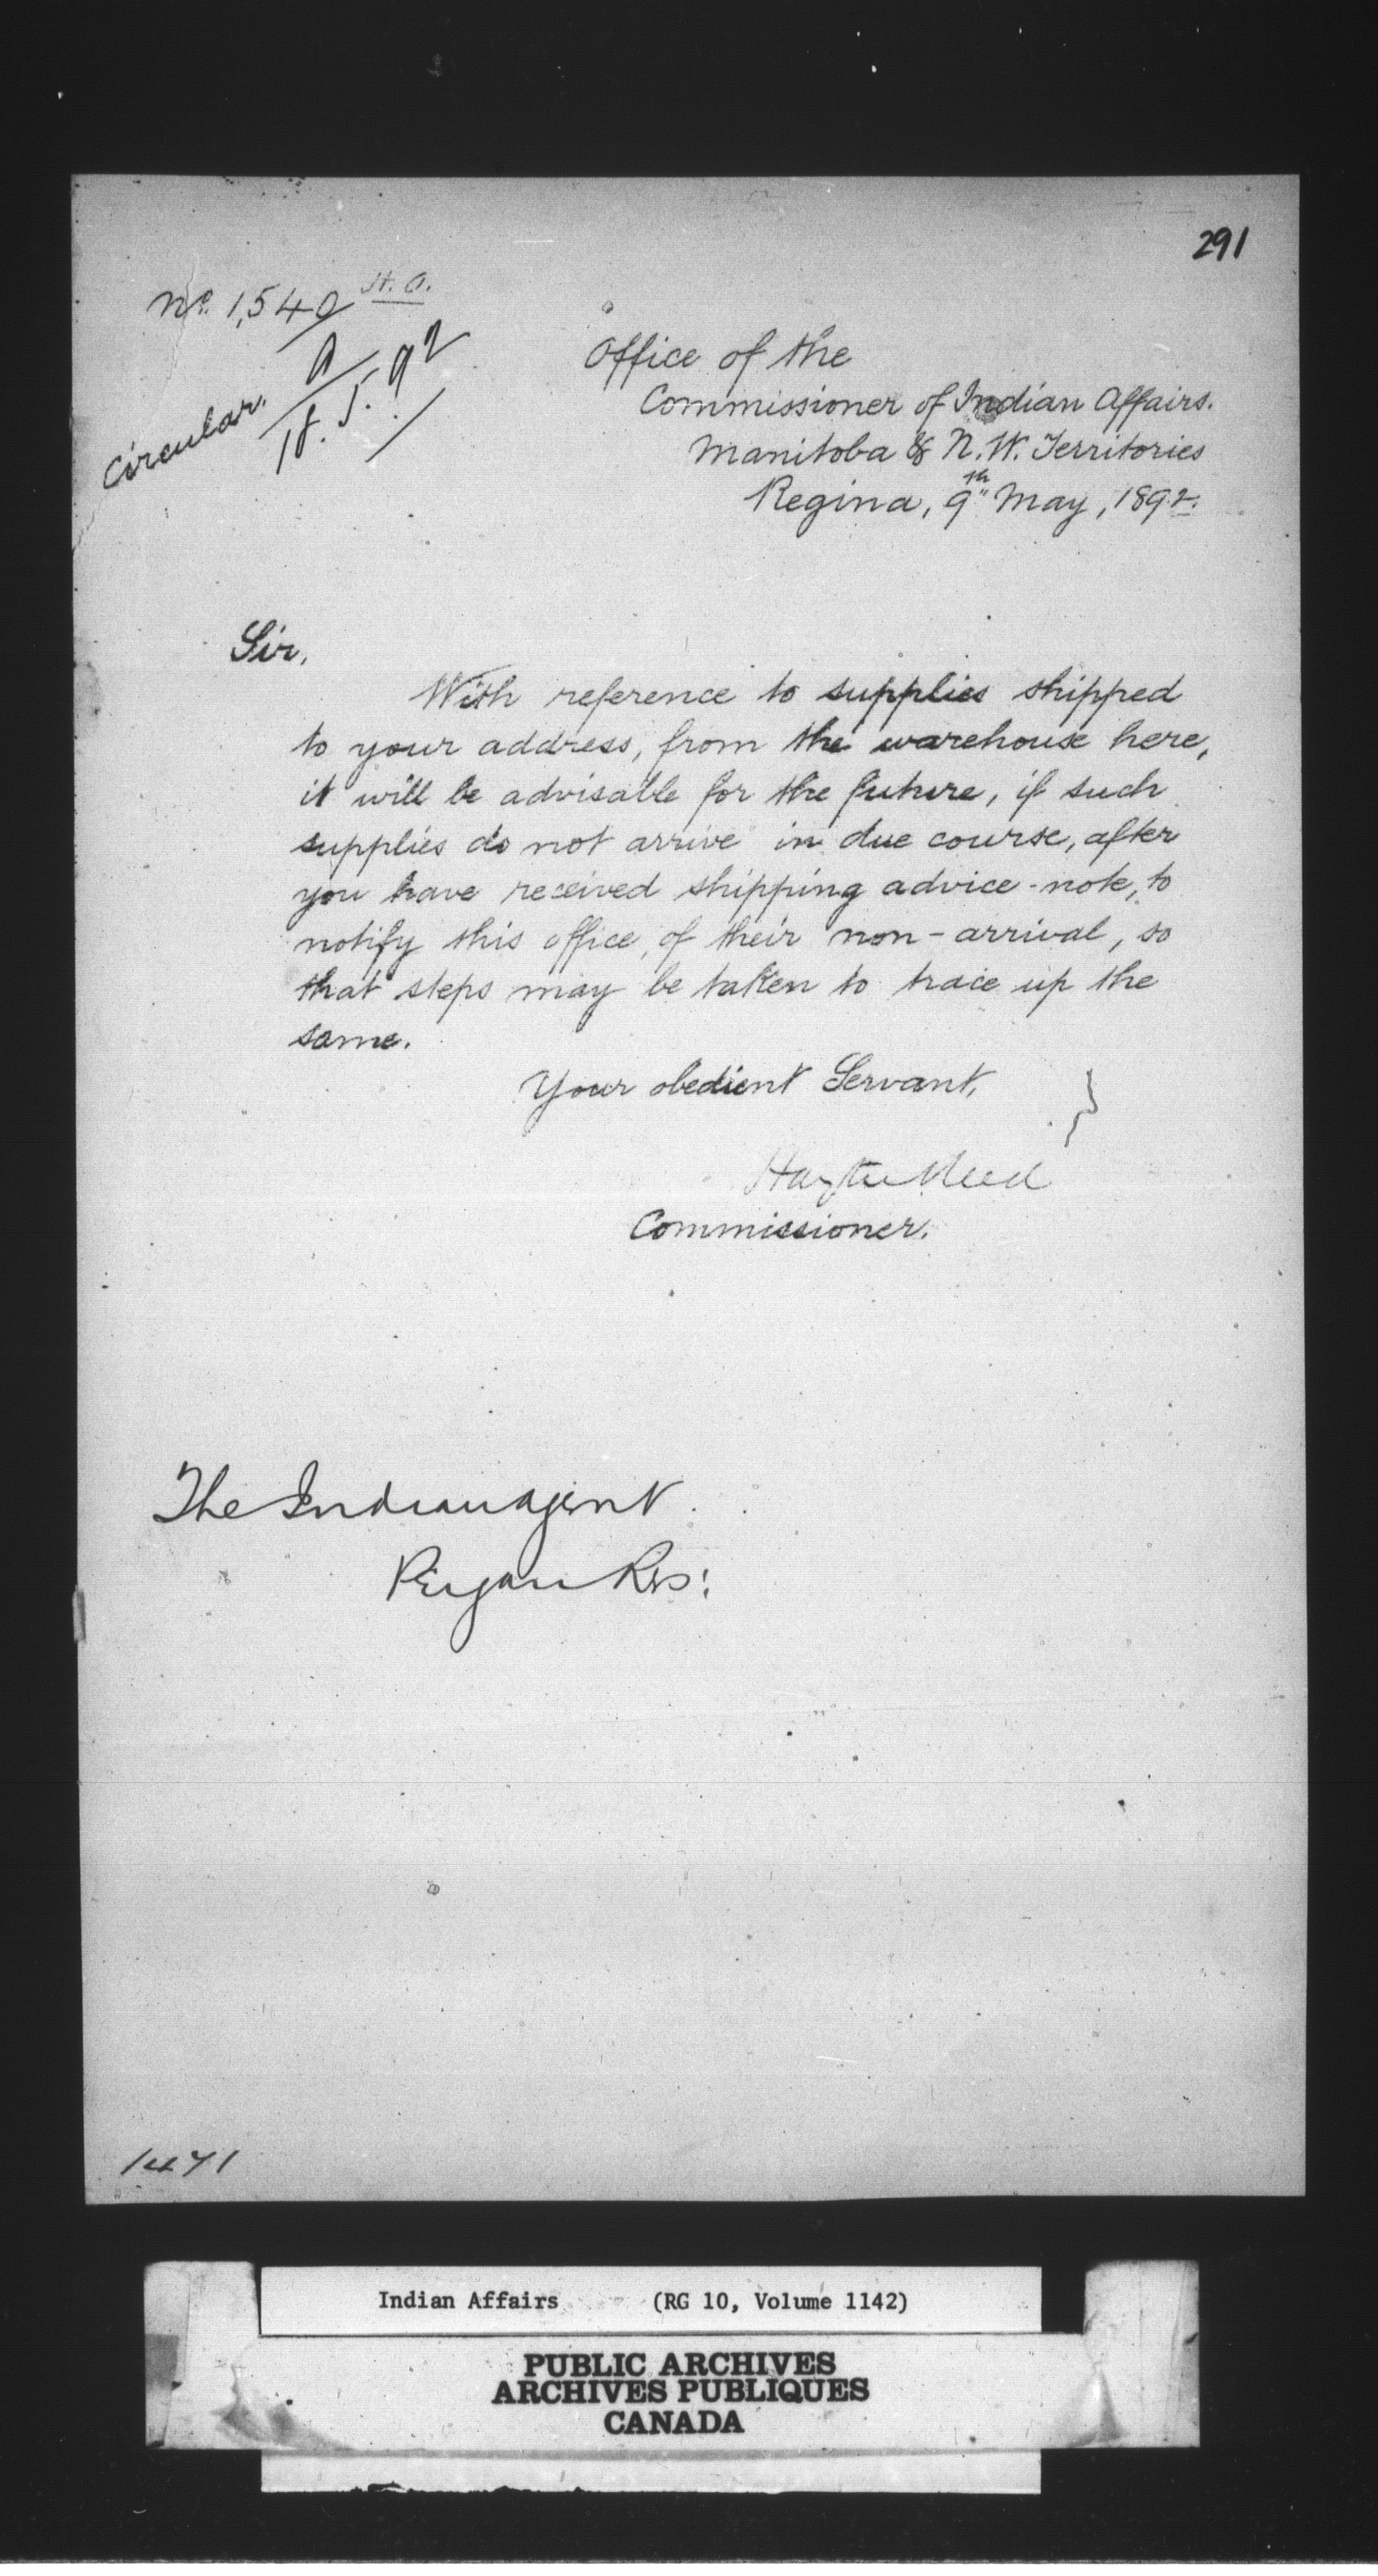 291
No. 1,540 H.O.
A
18.5.92
Circular.
Office of the
Commissioner of Indian Affairs.
Manitoba & N.W. Territories
Regina, 9th May, 1892.
Sir,
With reference to supplies shipped
to your address, from the warehouse here,
it will be advisable for the future, if such
supplies do not arrive in due course, after
you have received shipping advice-note, to
notify this office, of their non-arrival, so
that steps may be taken to trace up the
same.
Your obedient Servant,
Hayter Reed
Commissioner.
The Indian Agent
Piegan Res:
1471
Indian Affairs (RG 10, Volume 1142)
PUBLIC ARCHIVES
ARCHIVES PUBLIQUES
CANADA